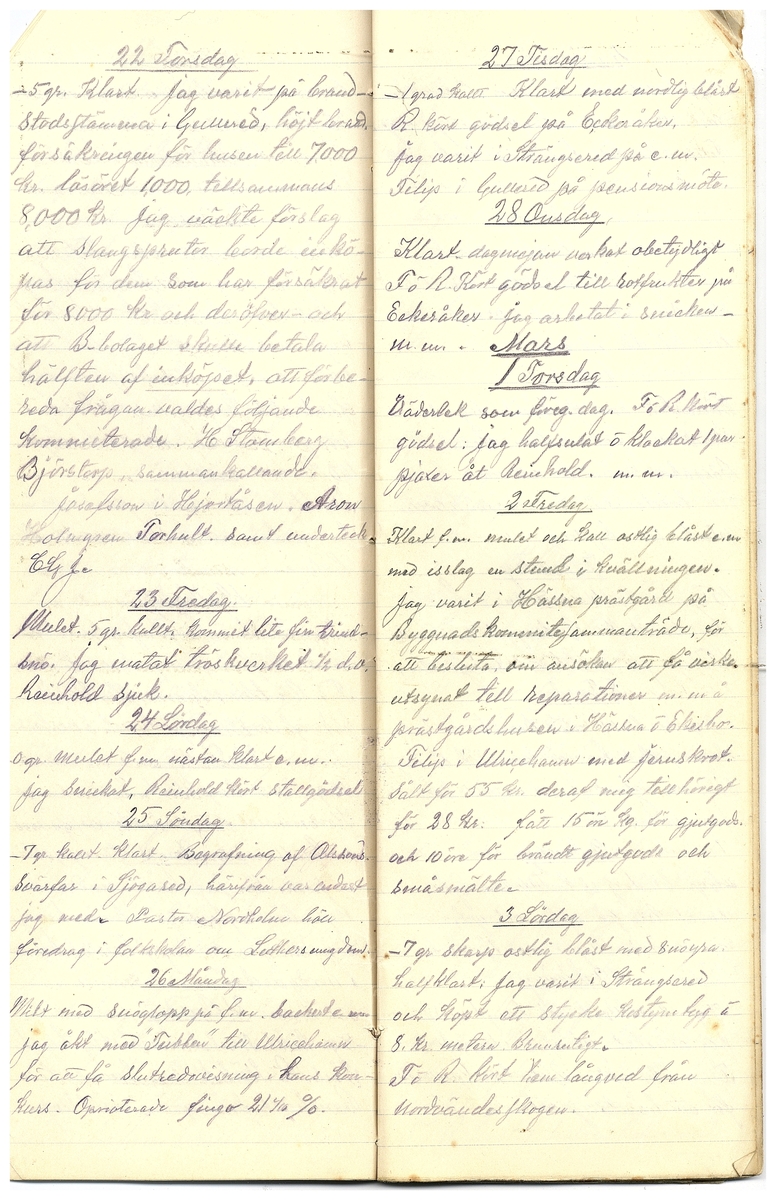 22 Torsdag
-5 gr. Klart. Jag varit på brand-
stodsstämma i Gullered, höjt brand-
försäkringen för husen till 7000
kr. lösöret 1,000, tillsammans
8,000 kr. Jag väckte förslag
att slangsprutor borde inkö-
pas för dem som har försäkrat
för 8000 kr och deröfver - och
att B-bolaget skulle betala
hälften af inköpet, att förbe-
reda frågan valdes följande
kommiterade. H Stomberg
Björstorp, sammankallande.
Josefsson i Hjortåsen. Aron
Holmgren Torhult. samt underteck-
C G J.
23 Fredag.
Mulet. 5 gr. kallt. kommit lite fin
snö. jag matat tröskverket ½ d.
Reinhold sjuk.
24 Lördag
0 gr. mulet f.m. nästan klart e.m.
jag snickat, Reinhold kört stallgödsel
25 Söndag.
-7 gr kallt klart. Begrafning af
Svärfar i Sjögared, härifrån var endast
jag med. Pastor Nordholm höll
föredrag i folkskolan om Luthers ungdom.
26 Måndag
Milt med snöglopp på f.m. vackert e.m
jag åkt med "Tubben" till Ulricehamn
för att få slutredovisning i hans kon-
kurs. Oprioterade fingo 21 %.
27 Tisdag
-1 grad kallt Klart med nordlig blåst
R. kört gödsel på Eckeråker.
jag varit i Strängsered på e.m.
Filip i Gullered på pensionsmöte.
28 Onsdag.
Klart - dagmejan verkat obetydligt
F o R. Kört gödsel till rotfrukter på
Eckeråker. jag arbetat i snicken-
m.m. - Mars
1 Torsdag
Väderlek som föreg. dag. F o R. kört
gödsel: jag halfsulat o klackat 1 par
pjäxer åt Reinhold. m.m.
2 Fredag
Klart f.m. mulet och kall ostlig blåst e.m
med isslag en stund i kvällningen.
jag varit i Hössna prästgård på
Byggnadskommitesammanträde, för
att besluta om ansöken att få virke
utsynat till reparationer m.m å
prästgårdshusen i Hössna o
Filip i Ulricehamn med jernskrot.
Sålt för 55 kr. deraf mig tillhörigt
för 28 kr: fått 15 ör kg. för gjutgods.
och 10 öre för brändt gjutgods och
småsmälte.
3 Lördag
-7 gr skarp ostlig blåst med snöyra.
halfklart. jag varit i Strängsered
och köpt ett stycke kostymtyg à
8. kr. metern
F o R. kört hem långved från
Nordvändesskogen.